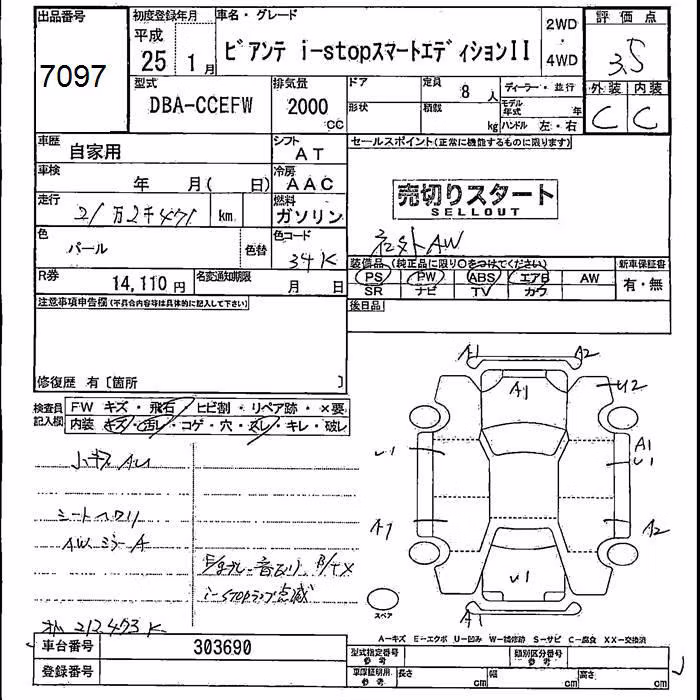 出品番号 初度登録年月 車名・グレード 2WD・4WD 評価点
7097 平成 25年 1月 ビアンテ i-stopスマートエディションII 3.5
型式 排気量 ドア 定員 8人 ディーラー・並行 外装 内装
DBA-CCEFW 2000cc 形状 積載 kg モデル年式 年 C C
ハンドル 左・右
車歴 自家用 シフト AT セールスポイント(正常に機能するものに限ります)
車検 年 月( 日) 冷房 AAC
売切りスタート
SELLOUT
走行 21万2千471 km 燃料 ガソリン
社外AW
色 パール 色替 色コード 34K
装備品(純正品に限り○をつけてください) 新車保証書
PS PW ABS エアB AW 有・無
SR ナビ TV カワ
R券 14,110円 名変通知期限 月 日
後日品
注意事項申告欄(不具合内容等は具体的に記入して下さい)
修復歴 有〔箇所 〕
検査員記入欄 FW キズ・飛石・ヒビ割・リペア跡・×要
内装 キズ・汚レ・コゲ・穴・スレ・キレ・破レ
小キズ AU
シートヘタリ
AWミゾA
i-stopランプ点滅
212,473K
A1 A2
A1 U2
U1 A1 U1
A1 A2
U1
A1
スペア
A—キズ E—エクボ U—凹み W—補修跡 S—サビ C—腐食 XX—交換済
車台番号 303690 型式指定番号 参考 類別区分番号 参考
登録番号 車庫証明用 参考 長さ cm 幅 cm 高さ cm